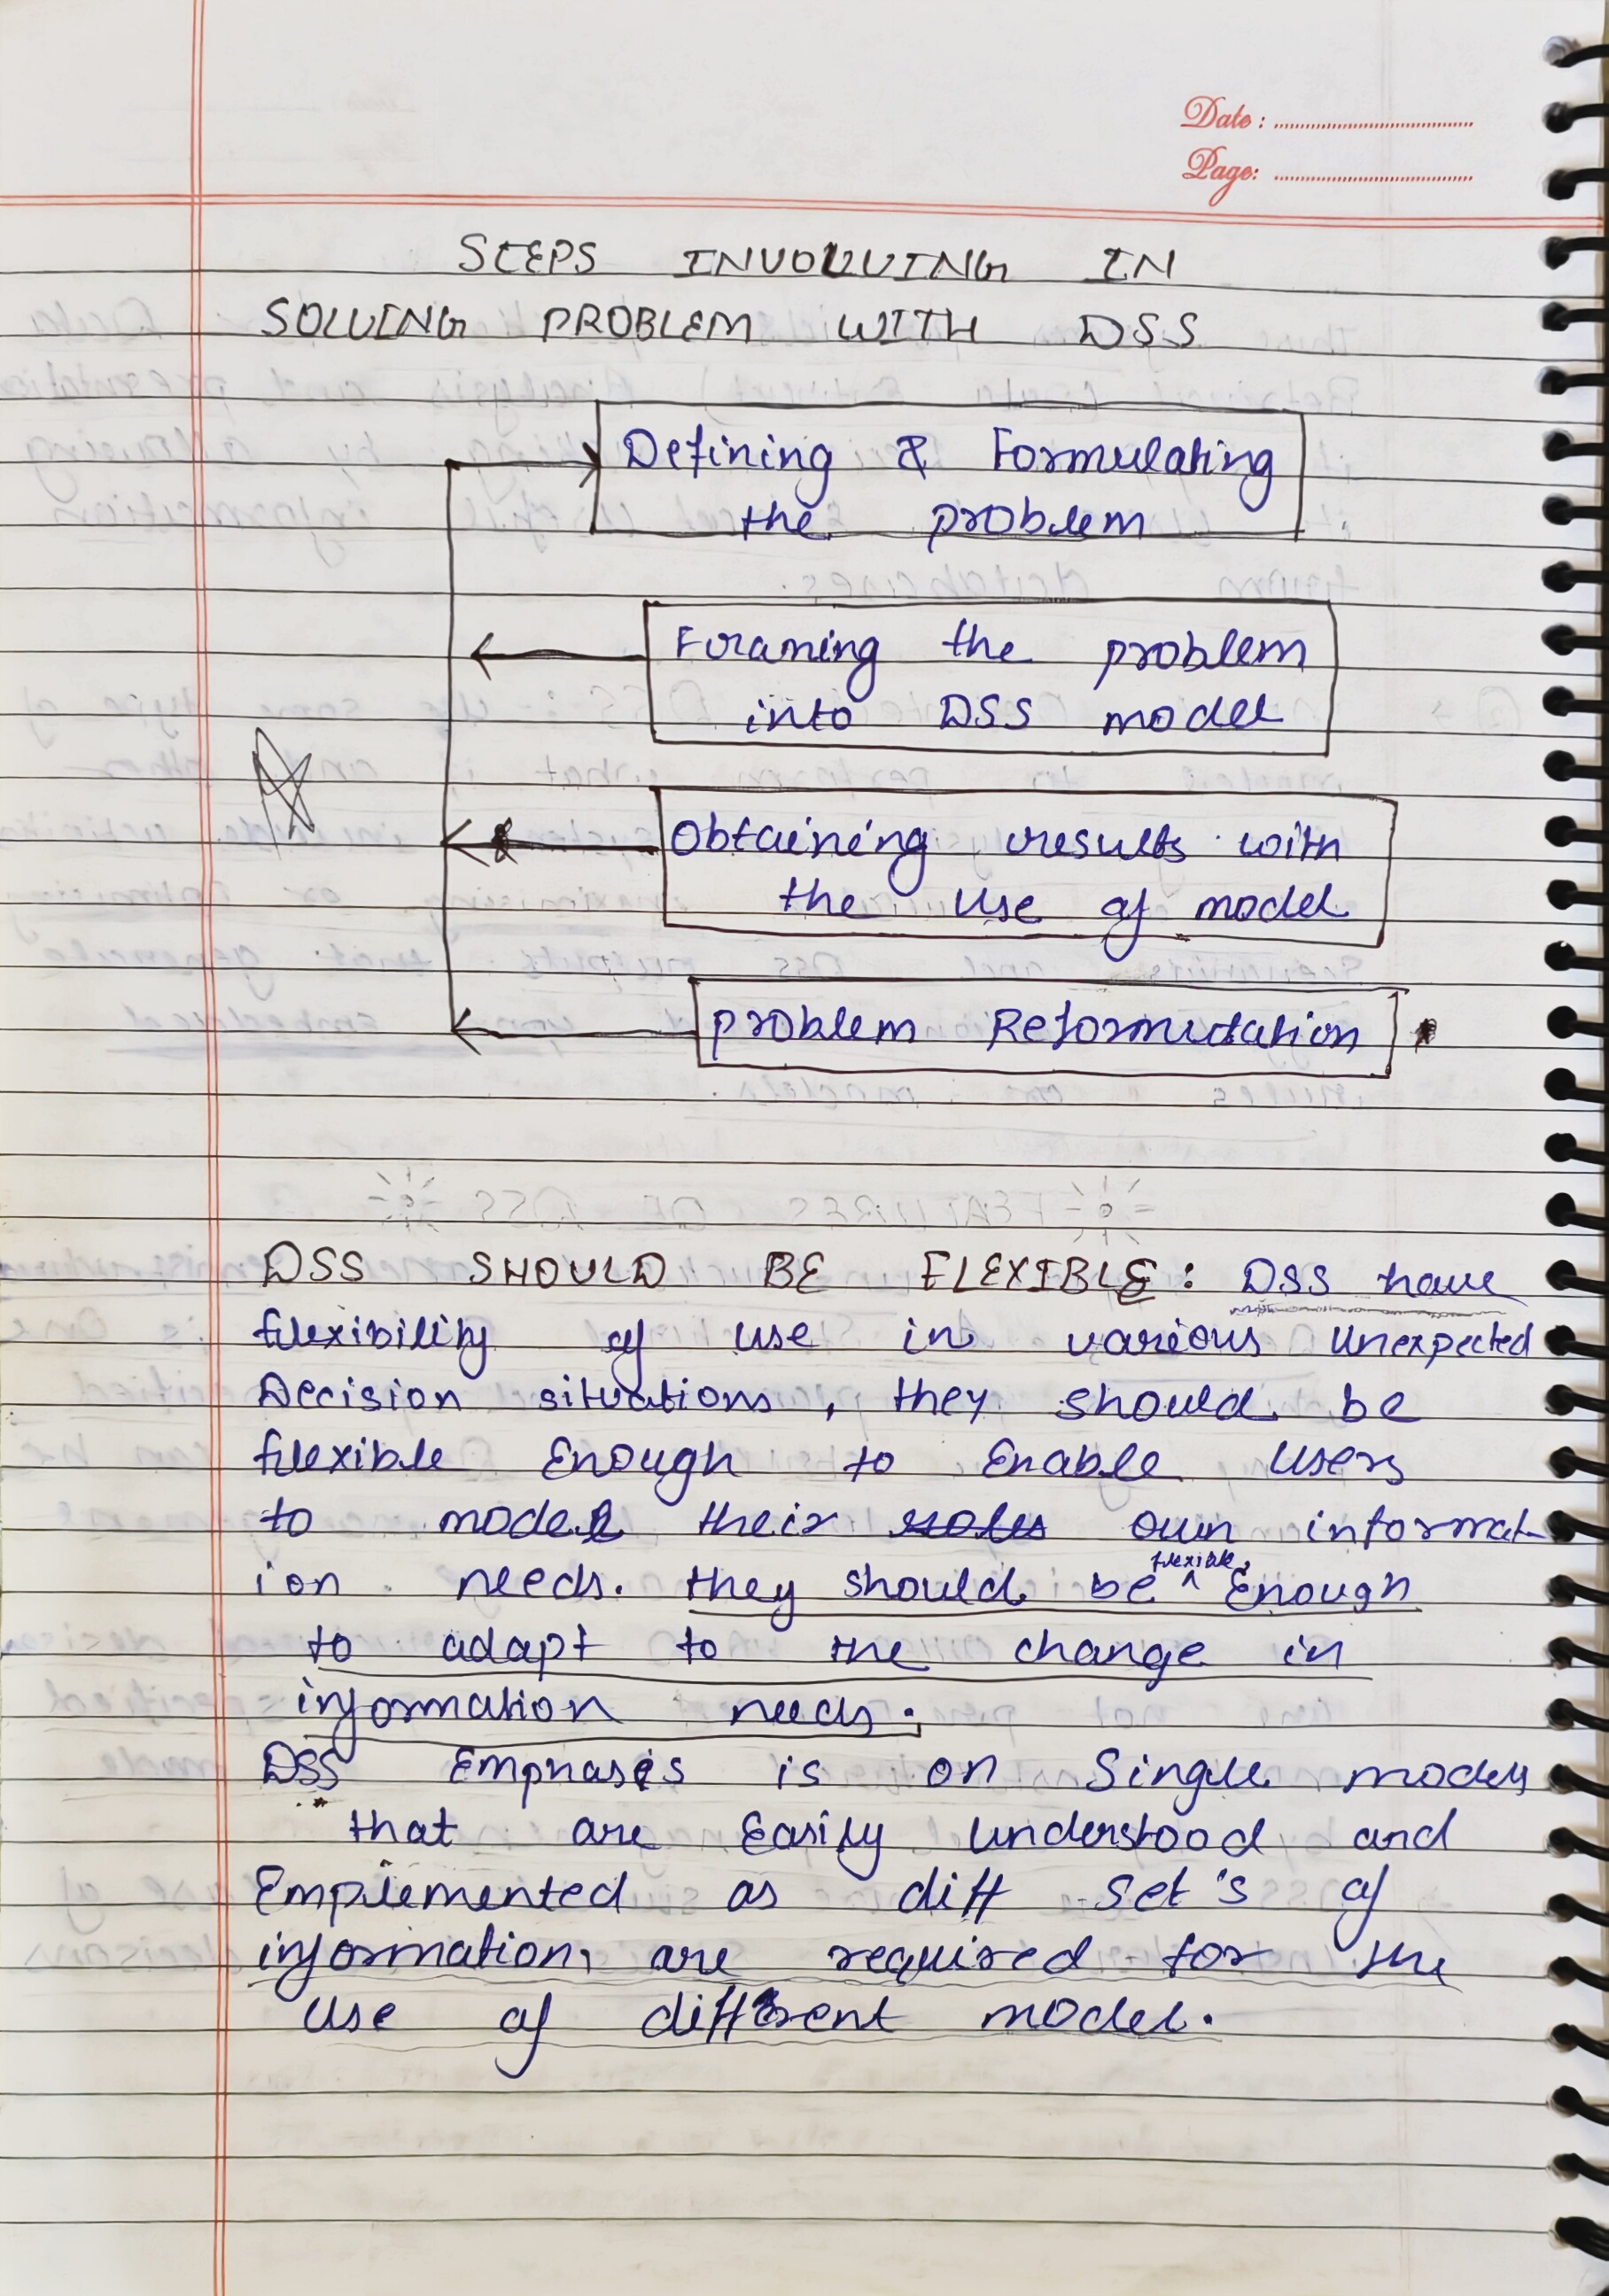 Date :
Page:
STEPS INVOLVING IN
SOLVING PROBLEM WITH DSS
Defining & Formulating
the problem
Framing the problem
into DSS model
Obtaining results with
the use of model
problem Reformulation
DSS SHOULD BE FLEXIBLE : DSS have
flexibility of use in various unexpected
Decision situations, they should be
flexible Enough to Enable users
to model their own informat
ion needs. they should be flexible Enough
to adapt to the change in
information needs.
DSS Emphasis is on Single models
that are Easily understood and
Emplemented as diff set's of
information, are required for the
use of different model.